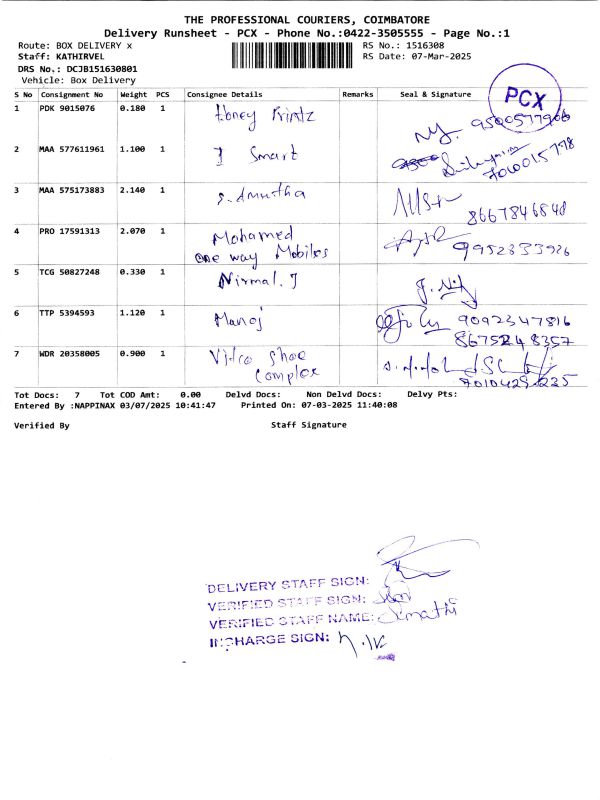 THE PROFESSIONAL COURIERS, COIMBATORE
Delivery Runsheet - PCX - Phone No.:0422-3505555 - Page No.:1
Route: BOX DELIVERY x RS No.: 1516308
Staff: KATHIRVEL RS Date: 07-Mar-2025
DRS No.: DCJB151630801
Vehicle: Box Delivery
PCX
S No Consignment No Weight PCS Consignee Details Remarks Seal & Signature
1 PDK 9015076 0.180 1 Honey Printz
2 MAA 577611961 1.100 1 I Smart 7010015778
3 MAA 575173883 2.140 1 S. Amutha 8667846840
4 PRO 17591313 2.070 1 Mohamed
one way Mobiles 9952333926
5 TCG 50827248 0.330 1 Nirmal. J
6 TTP 5394593 1.120 1 Manoj 9092347816
8675248357
7 WDR 20358005 0.900 1 Shoe
Complex
Tot Docs: 7 Tot COD Amt: 0.00 Delvd Docs: Non Delvd Docs: Delvy Pts:
Entered By :NAPPINAX 03/07/2025 10:41:47 Printed On: 07-03-2025 11:40:08
Verified By Staff Signature
DELIVERY STAFF SIGN:
VERIFIED STAFF SIGN:
VERIFIED STAFF NAME:
INCHARGE SIGN: